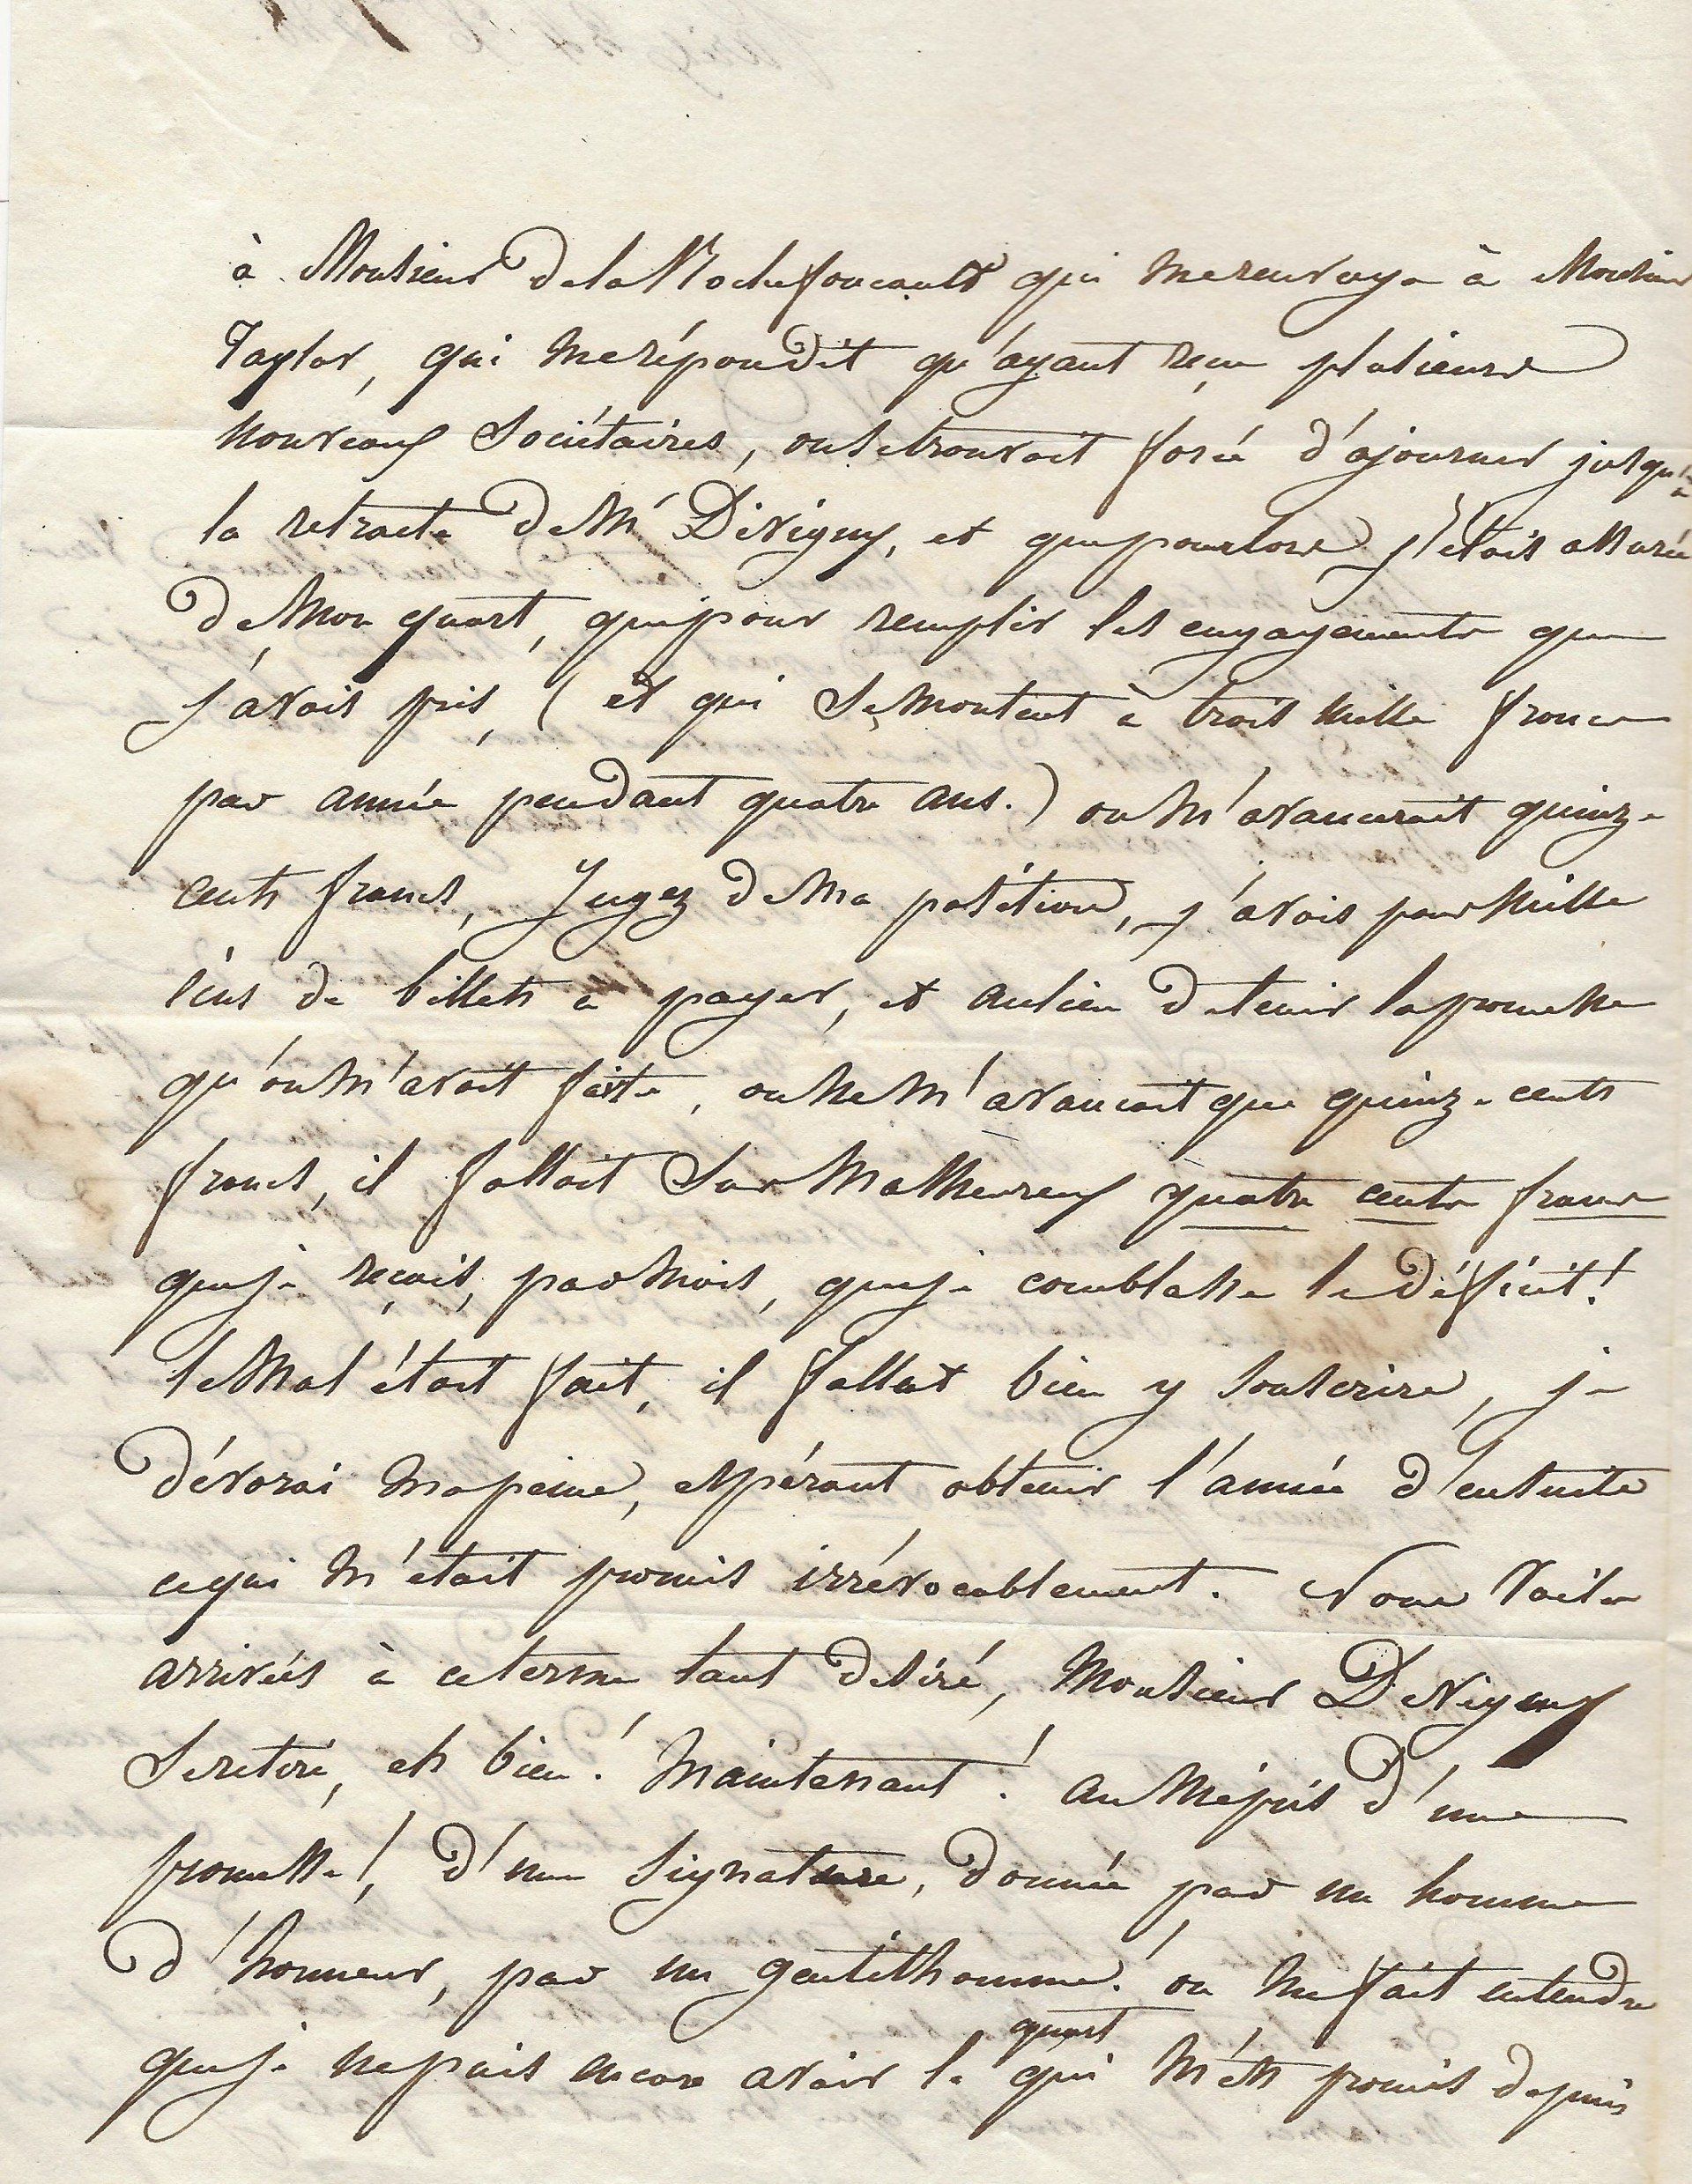 à Monsieur de la Rochefoucault qui me renvoya à Monsieur
Taylor, qui me répondit qu'ayant reçu plusieurs
nouveaux Sociétaires, on se trouvait forcé d'ajourner jusqu'à
la retraete de Mr Devigny, et que pourlors j'étais assurée
de mon quart, que pour remplir les engagements que
j'avais pris, (et qui se montent à trois mille francs
par année pendant quatre ans.) on m'avancerait quinze
cents francs, Jugez de ma position, j'avais pour mille
écus de billets a payer, et aulieu de tenir la promesse
qu'on m'avait faite, on ne m'avancait que quinze cents
francs, il fallait sur Malheureux quatre cents francs
que je reçois, par mois, que je comblasse le déficit!
le Mal était fait, il fallait bien y souscrire, je
dévorai ma peine, espérant obtenir l'année d'ensuite
ce qui m'était promis irrévocablement. Nous voila
arrivés à ce terme tant desiré, Monsieur Devigny
se retire, eh bien! Maintenant! au mépris d'une
promesse!, d'une signature, donnée par un homme
d'honneur, par un gentilhomme! on me fait entendre
que je ne puis encore avoir le quart qui m'est promis depuis